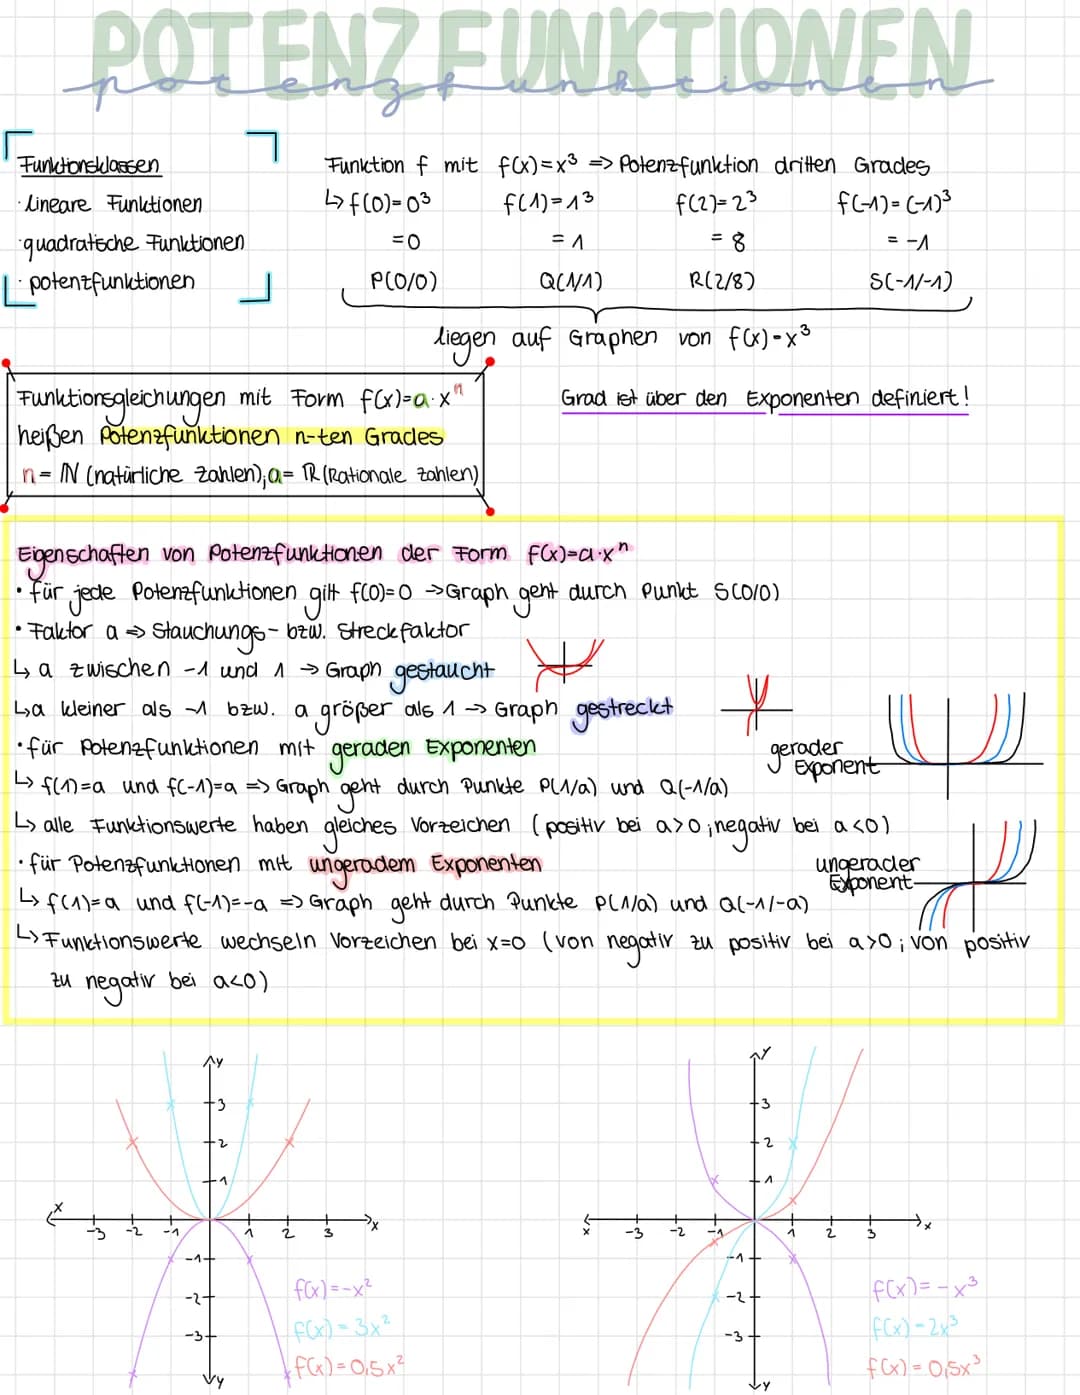 POTENZFUNKTIONEN
potenzfunktionen
Funktionsklassen
· lineare Funktionen
· quadratische Funktionen
· potenzfunktionen
Funktion f mit f(x)=x³ => Potenzfunktion dritten Grades
↳ f(0)=0³ f(1)=1³ f(2)=2³ f(-1)=(-1)³
=0 = 1 = 8 = -1
P(0/0) Q(1/1) R(2/8) S(-1/-1)
liegen auf Graphen von f(x)=x³
Funktionsgleichungen mit Form f(x)=a·xⁿ
heißen Potenzfunktionen n-ten Grades
n = ℕ (natürliche Zahlen); a = ℝ (Rationale Zahlen)
Grad ist über den Exponenten definiert!
Eigenschaften von Potenzfunktionen der Form f(x)=a·xⁿ
· für jede Potenzfunktionen gilt f(0)=0 → Graph geht durch Punkt S(0/0)
· Faktor a => Stauchungs- bzw. Streckfaktor
↳ a zwischen -1 und 1 → Graph gestaucht
↳ a kleiner als -1 bzw. a größer als 1 → Graph gestreckt
· für Potenzfunktionen mit geraden Exponenten
gerader
Exponent
↳ f(1)=a und f(-1)=a => Graph geht durch Punkte P(1/a) und Q(-1/a)
↳ alle Funktionswerte haben gleiches Vorzeichen (positiv bei a>0; negativ bei a<0)
· für Potenzfunktionen mit ungeradem Exponenten
ungerader
Exponent
↳ f(1)=a und f(-1)=-a => Graph geht durch Punkte P(1/a) und Q(-1/-a)
↳ Funktionswerte wechseln Vorzeichen bei x=0 (von negativ zu positiv bei a>0; von positiv
zu negativ bei a<0)
y
3
2
1
x
-3 -2 -1 1 2 3 x
-1
-2
-3
y
f(x)=-x²
f(x)=3x²
f(x)=0,5x²
y
3
2
1
x
-3 -2 -1 1 2 3 x
-1
-2
-3
y
f(x)=-x³
f(x)=2x³
f(x)=0,5x³